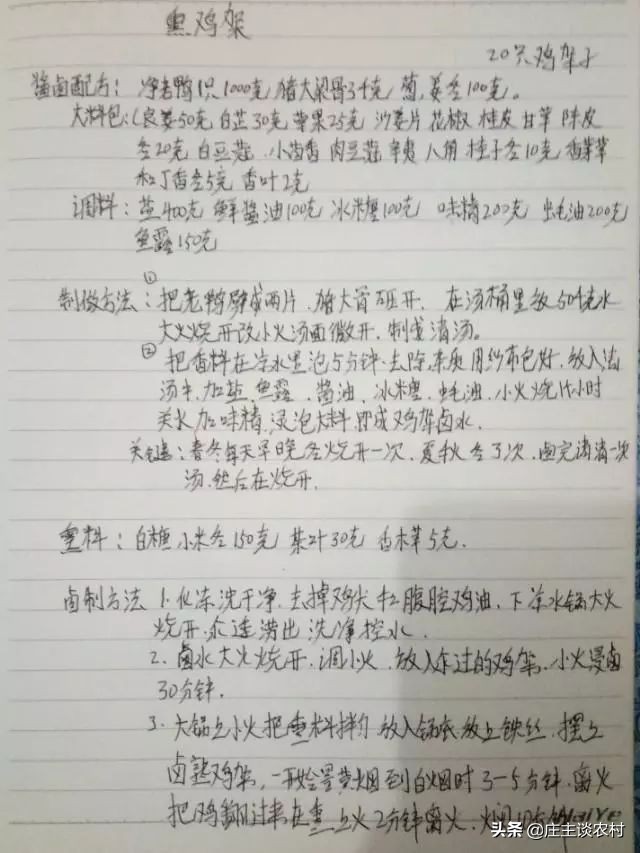 熏鸡架
20只鸡架子
酱卤配方：净老鸭1只1000克 猪大梁骨3千克 葱,姜各100克。
大料包:(良姜50克 白芷30克 草果25克 沙姜片 花椒 桂皮 甘草 陈皮
各20克 白豆蔻 小茴香 肉豆蔻 辛夷 八角 桂子各10克 香茅草
和丁香各5克 香叶2克
调料：盐400克 鲜酱油100克 冰糖100克 味精200克 蚝油200克
鱼露150克
制做方法：①把老鸭劈成两片、猪大骨砸开、在汤桶里放50千克水
大火烧开改小火汤面微开、制成清汤。
②把香料在冷水里泡5分钟.去除杂质 用纱布包好.放入清
汤中.加盐.鱼露、酱油、冰糖.蚝油.小火烧1小时
关火加味精、浸泡大料即成鸡架卤水.
关键：春冬每天早晚各烧开一次、夏秋各3次.卤完清清一次
汤.然后在烧开.
熏料：白糖 小米各150克 茶叶30克 香木草5克.
卤制方法 1.化冻洗干净.去掉鸡尖和腹腔鸡油、下凉水锅大火
烧开.汆透捞出 洗净控水.
2.卤水大火烧开.调小火.放入汆过的鸡架、小火浸卤
30分钟.
3.大锅上小火把熏料拌匀 放入锅底 放上铁丝.摆上
卤熟鸡架,一开始冒黄烟到白烟时3-5分钟.离火
把鸡翻过来在熏 上火2分钟离火.
头条 @庄主谈农村